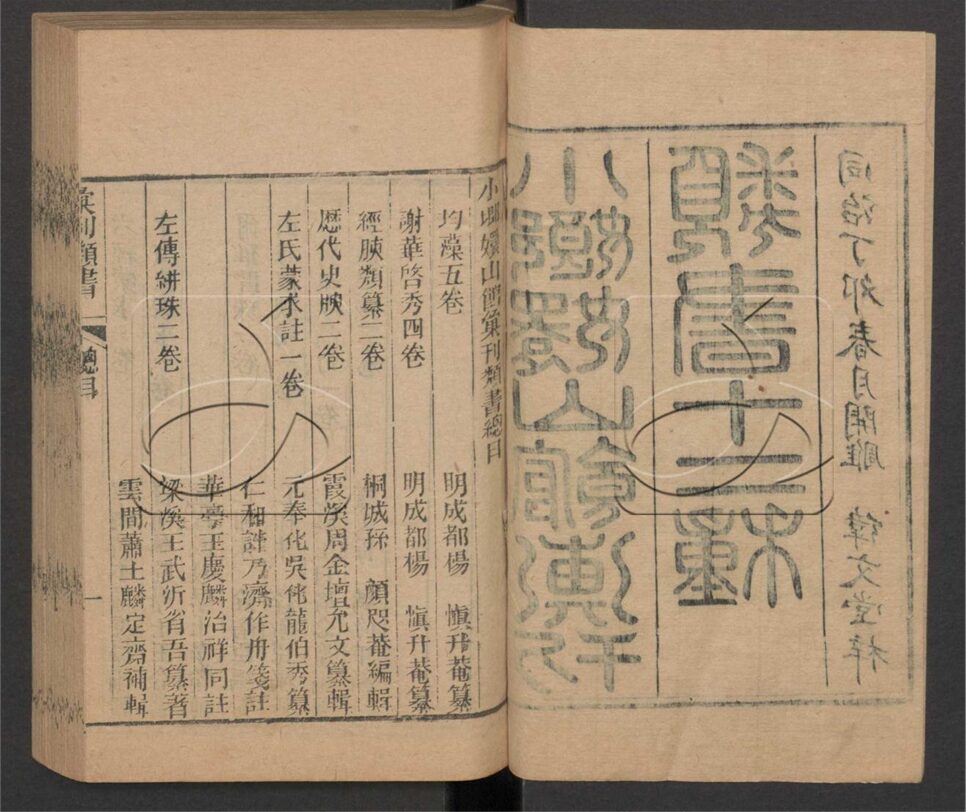 小嫏嬛山館彙刊
類書十二種
同治丁卯春月開雕 緯文堂梓
小嫏嬛山館彙刊類書總目
均藻五卷 明成都楊 愼升菴纂
謝華啓秀四卷 明成都楊 愼升菴纂
經腴類纂二卷 桐城孫 顏咫菴編輯
歷代史腴二卷 霞溪周金壇允文纂輯
左氏蒙求註一卷 元奉化吳化龍伯秀纂
仁和許乃濟作舟箋註
華亭王慶麟治祥同註
左傳紺珠二卷 梁溪王武沂省吾纂著
雲間蕭士麟定齋補輯
彙刊類書 總目 一